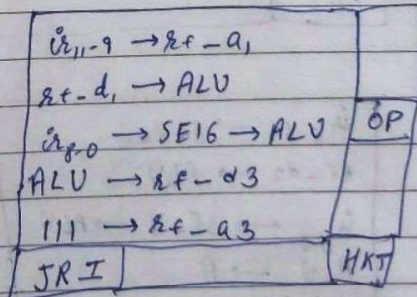 ir11-9 → rf-a1
rf-d1 → ALU
ir8-0 → SE16 → ALU OP
ALU → rf-d3
111 → rf-a3
JRI HKT